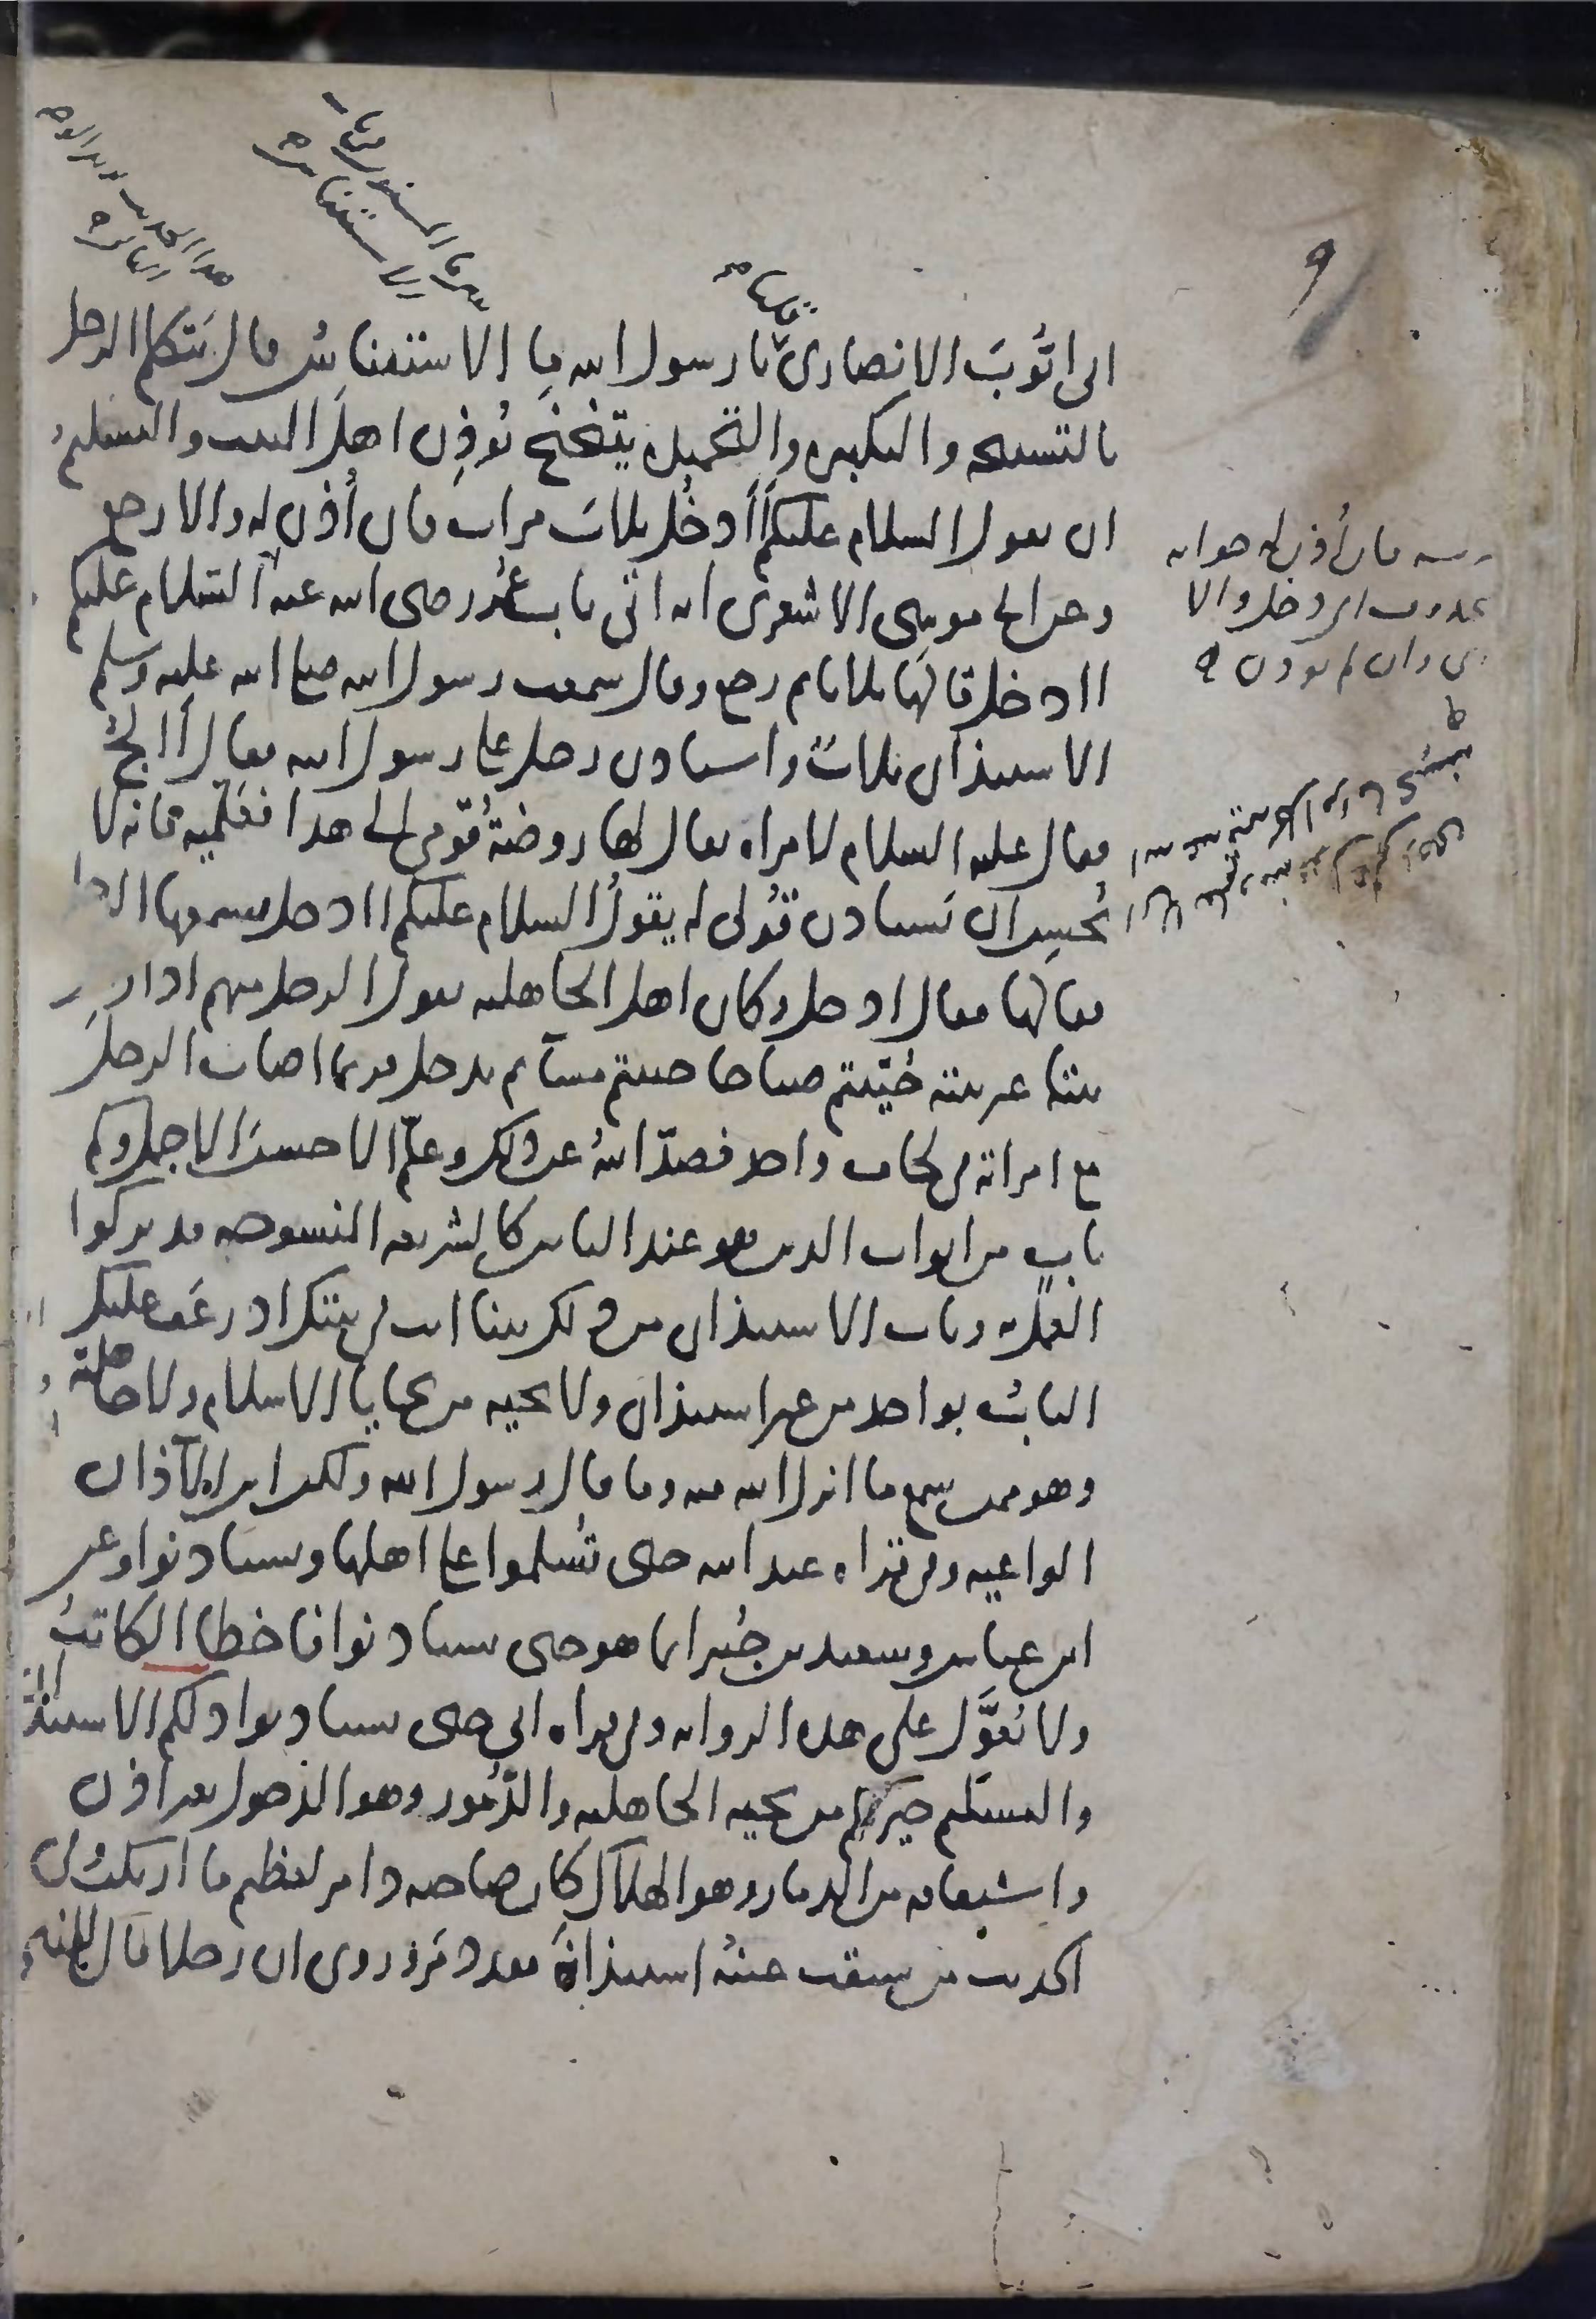 ٩
قلنا
ابى ايوب الانصارى يا رسول الله ما الاستئناس قال يتكلم الرجل
بالتسبيحه والتكبيره والتحميده يتنحنح يؤذن اهل البيت والتسليم
ان يقول السلام عليكم أأدخل ثلاث مرات فان أذن له والا رجع
وعن ابى موسى الاشعرى انه اتى باب عمر رضى الله عنه السلام عليكم
اادخل قالها ثلاثا ثم رجع وقال سمعت رسول الله صلى الله عليه وسلم
الاستئذان ثلاث واستاذن رجل على رسول الله فقال أألج
فقال عليه السلام لامراه يقال لها روضة قومى الى هذا فعلميه فانه لا
يحسن ان يستاذن قولى له يقول السلام عليكم اادخل فسمعها الرجل
فقالها فقال ادخل وكان اهل الجاهليه يقول الرجل منهم اذا دخل
بيتا غير بيته حييتم صباحا حييتم مساء ثم يدخل فربما اصاب الرجل
مع امراته فى لحاف واحد فصد الله عن ذلك وعلم الاحسن الاجمل وكم
باب من ابواب الدين هو عند الناس كالشريعه المنسوخه قد تركوا
العمل به وباب الاستيذان من ذلك بينا انت فى بيتك اذ رعف عليك
الباب بواحد من غير استيذان ولا تحيه من تحايا الاسلام ولا جاهلية
وهو ممن سمع ما انزل الله فيه وما قال رسول الله ولكن اين الآذان
الواعيه وفى قراه عبد الله حتى تسلموا على اهلها وتستاذنوا وعن
ابن عباس وسعيد بن جبير انما هو حتى تستاذنوا فاخطا الكاتب
ولا يعول على هذه الروايه وفى قراه ابى حتى تستاذنوا ذلكم الاستيذان
والتسليم خير لكم من تحيه الجاهليه والدمور وهو الدخول بغير اذن
واشتقاقه من الدمار وهو الهلاك كان صاحبه دامر لعظم ما ارتكب وفى
الحديث من سبقت عينه استيذانه فقد دمر وروى ان رجلا قال للنبى